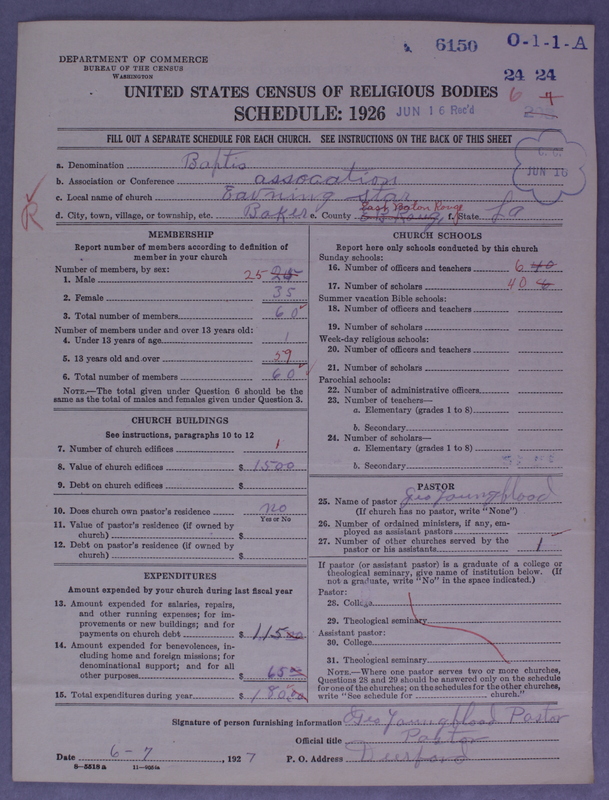 6150 0-1-1-A
DEPARTMENT OF COMMERCE
BUREAU OF THE CENSUS
WASHINGTON
24 24
UNITED STATES CENSUS OF RELIGIOUS BODIES
6 7
SCHEDULE: 1926 JUN 16 Rec'd
FILL OUT A SEPARATE SCHEDULE FOR EACH CHURCH. SEE INSTRUCTIONS ON THE BACK OF THIS SHEET
a. Denomination Baptis
JUN 16
b. Association or Conference assocation
c. Local name of church Eavning Star
d. City, town, village, or township, etc. Baker e. County East Baton Roug f. State La
R
MEMBERSHIP
Report number of members according to definition of
member in your church
Number of members, by sex:
1. Male 25
2. Female 35
3. Total number of members 60
Number of members under and over 13 years old:
4. Under 13 years of age 1
5. 13 years old and over 59
6. Total number of members 60
NOTE.—The total given under Question 6 should be the
same as the total of males and females given under Question 3.
CHURCH BUILDINGS
See instructions, paragraphs 10 to 12
7. Number of church edifices 1
8. Value of church edifices $ 1500
9. Debt on church edifices $
10. Does church own pastor's residence no
Yes or No
11. Value of pastor's residence (if owned by
church) $
12. Debt on pastor's residence (if owned by
church) $
EXPENDITURES
Amount expended by your church during last fiscal year
13. Amount expended for salaries, repairs,
and other running expenses; for im-
provements or new buildings; and for
payments on church debt $ 11500
14. Amount expended for benevolences, in-
cluding home and foreign missions; for
denominational support; and for all
other purposes $ 6500
15. Total expenditures during year $ 180.00
CHURCH SCHOOLS
Report here only schools conducted by this church
Sunday schools:
16. Number of officers and teachers 6 40
17. Number of scholars 40 6
Summer vacation Bible schools:
18. Number of officers and teachers
19. Number of scholars
Week-day religious schools:
20. Number of officers and teachers
21. Number of scholars
Parochial schools:
22. Number of administrative officers
23. Number of teachers—
a. Elementary (grades 1 to 8)
b. Secondary
24. Number of scholars—
a. Elementary (grades 1 to 8)
b. Secondary
PASTOR
25. Name of pastor Geo Youngblood
(If church has no pastor, write "None")
26. Number of ordained ministers, if any, em-
ployed as assistant pastors
27. Number of other churches served by the
pastor or his assistants 1
If pastor (or assistant pastor) is a graduate of a college or
theological seminary, give name of institution below. (If
not a graduate, write "No" in the space indicated.)
Pastor:
28. College
29. Theological seminary
Assistant pastor:
30. College
31. Theological seminary
NOTE.—Where one pastor serves two or more churches,
Questions 28 and 29 should be answered only on the schedule
for one of the churches; on the schedules for the other churches,
write "See schedule for church."
Signature of person furnishing information Geo Youngblood Pastor
Official title Pastor
Date 6-7, 1927 P. O. Address
8-5518a 11-9051a